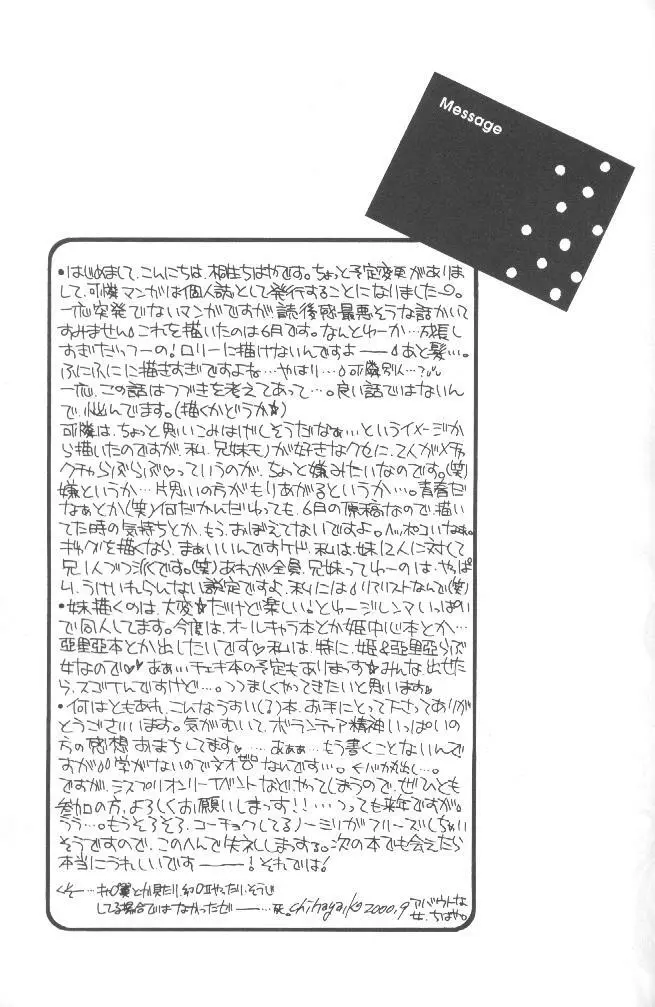 Message
・はじめまして、こんにちは、相生ちはやです。ちょっと予定変更がありま
して、可憐マンガは個人誌として発行することになりました〜。
一応突発でないマンガですが、読後感最悪そうな話かいて
すみません これを描いたのは6月です。なんとゆーか…成長し
すぎだっつーの!ロリーに描けないんですよ——あと髪…。
ふにふにに描きすぎですよね…やはり…可憐別人…?
一応、この話はつづきを考えてあって…。良い話ではないん
で、悩んでます。(描くかどうか☆)
可憐は、ちょっと思いこみはげしそうだなぁ…というイメージか
ら描いたのですが、私、兄妹モノが好きなクセに、2人がメチャ
クチャらぶらぶ っていうのが、ちょっと嫌みたいなのです。(笑)
嫌というか…片思いの方がもりあがるというか…。青春だ
なぁとか(笑)何だかんだいっても、6月の原稿なので、描い
てた時の気持ちとか、もう、おぼえてないですよ。ヘッポコいなぁ。
ギャグを描くなら、まぁいいんですけど、私は、妹12人に対して
兄1人づつ派です。(笑)あれが全員、兄妹ってゆーのは、やっぱ
り、うけいれらんない設定ですよ、私には リアリストなんで(笑)
・妹描くのは、大変☆だけど楽しい!とゆージレンマいっぱい
で同人してます。今度は、オールキャラ本とか姫中心本とか…
亜里亜本とか出したいです♡私は、特に、姫&亜里亜らぶ
女なので♥♥あぁぃチェキ本の予定もありまっす☆みんな出せた
ら、スゴイんですけど…。つつましくやってきたいと思います
・何はともあれ、こんなうすい(る)本、お手にとって下さってありが
とうございます。気がすいて、ボランティア精神いっぱいの
方の感想 おまちしてます。……あぁぁ…もう書くことないんで
すが 学がないので文才ゼロなんです…。←バカ丸出し…。
ですが、ミスプリオンリーイベントなどやってしまうので、ぜひとも
参加の方、よろしくお願いしまっす!!…つっても来年ですが
うう…。もうそろそろ、コーチョクしてるノーミソがフリーズしちゃい
そうですので、このへんで失礼しまっする。次の本でも会えたら
本当にうれしいです———!それでは!
くそー…とか見たり、やったり、そうじ
してる場合ではなかったぜ——…死。chihayaiko 2000.9 アバウトな
女、ちはや。